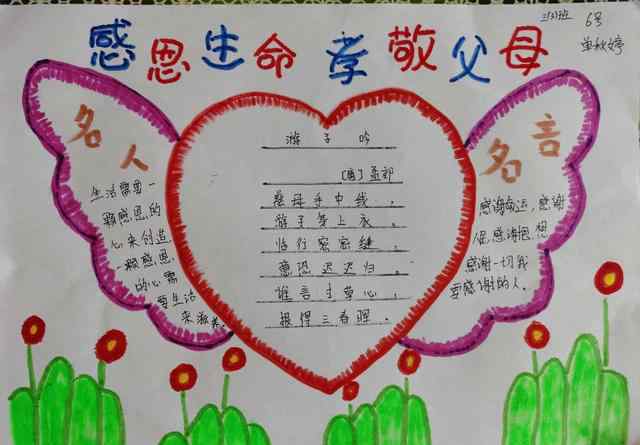 感恩生命 孝敬父母
三(3)班 6号
单秋婷
名人
生活需要一
颗感恩的
心来创造
一颗感恩
的心需
要生活
来滋养。
游子吟
[唐]孟郊
慈母手中线，
游子身上衣。
临行密密缝，
意恐迟迟归。
谁言寸草心，
报得三春晖。
名言
感谢命运，感谢
感谢思想
感谢一切我
要感谢的人。